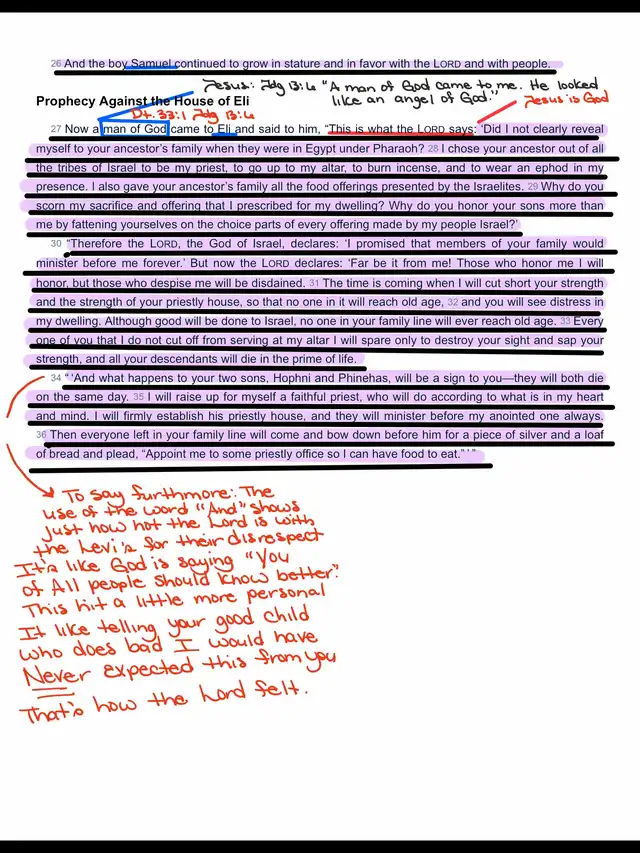 26 And the boy Samuel continued to grow in stature and in favor with the LORD and with people.
Jesus: Jdg 13:6 "A man of God came to me. He looked
like an angel of God."
Jesus is God
Prophecy Against the House of Eli
Dt. 33:1 Jdg 13:6
27 Now a man of God came to Eli and said to him, "This is what the LORD says: 'Did I not clearly reveal
myself to your ancestor's family when they were in Egypt under Pharaoh? 28 I chose your ancestor out of all
the tribes of Israel to be my priest, to go up to my altar, to burn incense, and to wear an ephod in my
presence. I also gave your ancestor's family all the food offerings presented by the Israelites. 29 Why do you
scorn my sacrifice and offering that I prescribed for my dwelling? Why do you honor your sons more than
me by fattening yourselves on the choice parts of every offering made by my people Israel?'
30 "Therefore the LORD, the God of Israel, declares: 'I promised that members of your family would
minister before me forever.' But now the LORD declares: 'Far be it from me! Those who honor me I will
honor, but those who despise me will be disdained. 31 The time is coming when I will cut short your strength
and the strength of your priestly house, so that no one in it will reach old age, 32 and you will see distress in
my dwelling. Although good will be done to Israel, no one in your family line will ever reach old age. 33 Every
one of you that I do not cut off from serving at my altar I will spare only to destroy your sight and sap your
strength, and all your descendants will die in the prime of life.
34 " 'And what happens to your two sons, Hophni and Phinehas, will be a sign to you—they will both die
on the same day. 35 I will raise up for myself a faithful priest, who will do according to what is in my heart
and mind. I will firmly establish his priestly house, and they will minister before my anointed one always.
36 Then everyone left in your family line will come and bow down before him for a piece of silver and a loaf
of bread and plead, "Appoint me to some priestly office so I can have food to eat." ' "
To say furthmore: The
use of the word "And" shows
just how hot the Lord is with
the Levi's for their disrespect
It's like God is saying "You
of All people should know better."
This hit a little more personal
It like telling your good child
who does bad I would have
Never expected this from you
That's how the Lord felt.